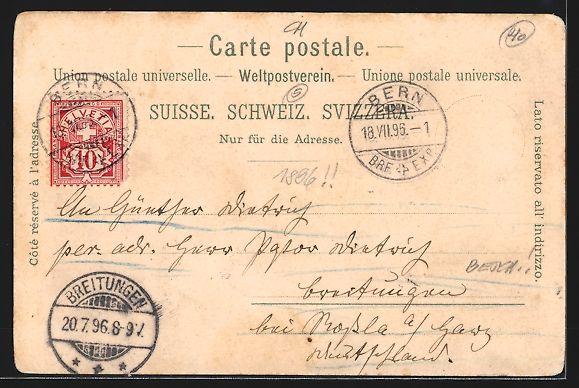 CH
40
— Carte postale. —
Union postale universelle. — Weltpostverein. — Unione postale universale.
5
SUISSE. SCHWEIZ. SVIZZERA.
Nur für die Adresse.
BERN
HELVETIA
10
BERN
18.VII.96.–1
BRF. EXP.
Côté réservé à l'adresse.
Lato riservato all' indirizzo.
1896!!
An Günther Dietrich
per. adr. Herr Pastor Dietrich
BERN!!
Breitungen
bei Roßla a/ Harz
Deutschland.
BREITUNGEN
20.7.96.8-9V.